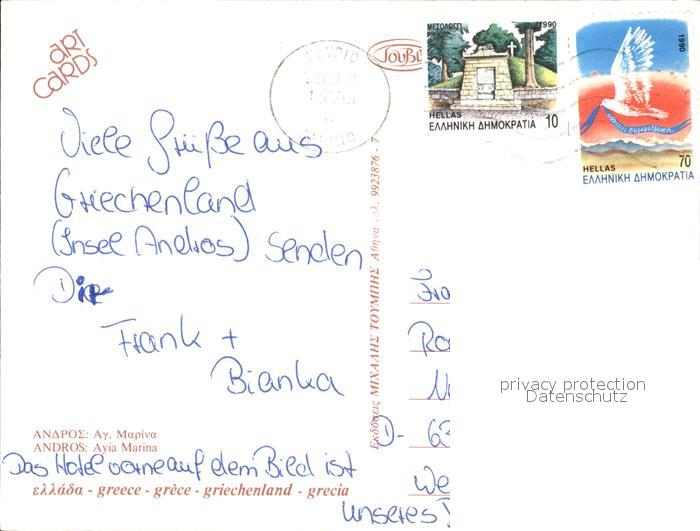 art
cards
ΜΕΣΟΛΟΓΓΙ 1990
HELLAS 10
ΕΛΛΗΝΙΚΗ ΔΗΜΟΚΡΑΤΙΑ
1990
HELLAS 70
ΕΛΛΗΝΙΚΗ ΔΗΜΟΚΡΑΤΙΑ
Viele Grüße aus
Griechenland
(Insel Andros) senden
Dir
Frank +
Bianka
ΑΝΔΡΟΣ: Αγ. Μαρίνα
ANDROS: Ayia Marina
Das Hotel vorne auf dem Bild ist
unseres!
ελλάδα - greece - grèce - griechenland - grecia
Εκδόσεις ΜΙΧΑΛΗΣ ΤΟΥΜΠΗΣ Αθήνα τηλ. 9923876 - 7
D- 63
We
privacy protection
Datenschutz